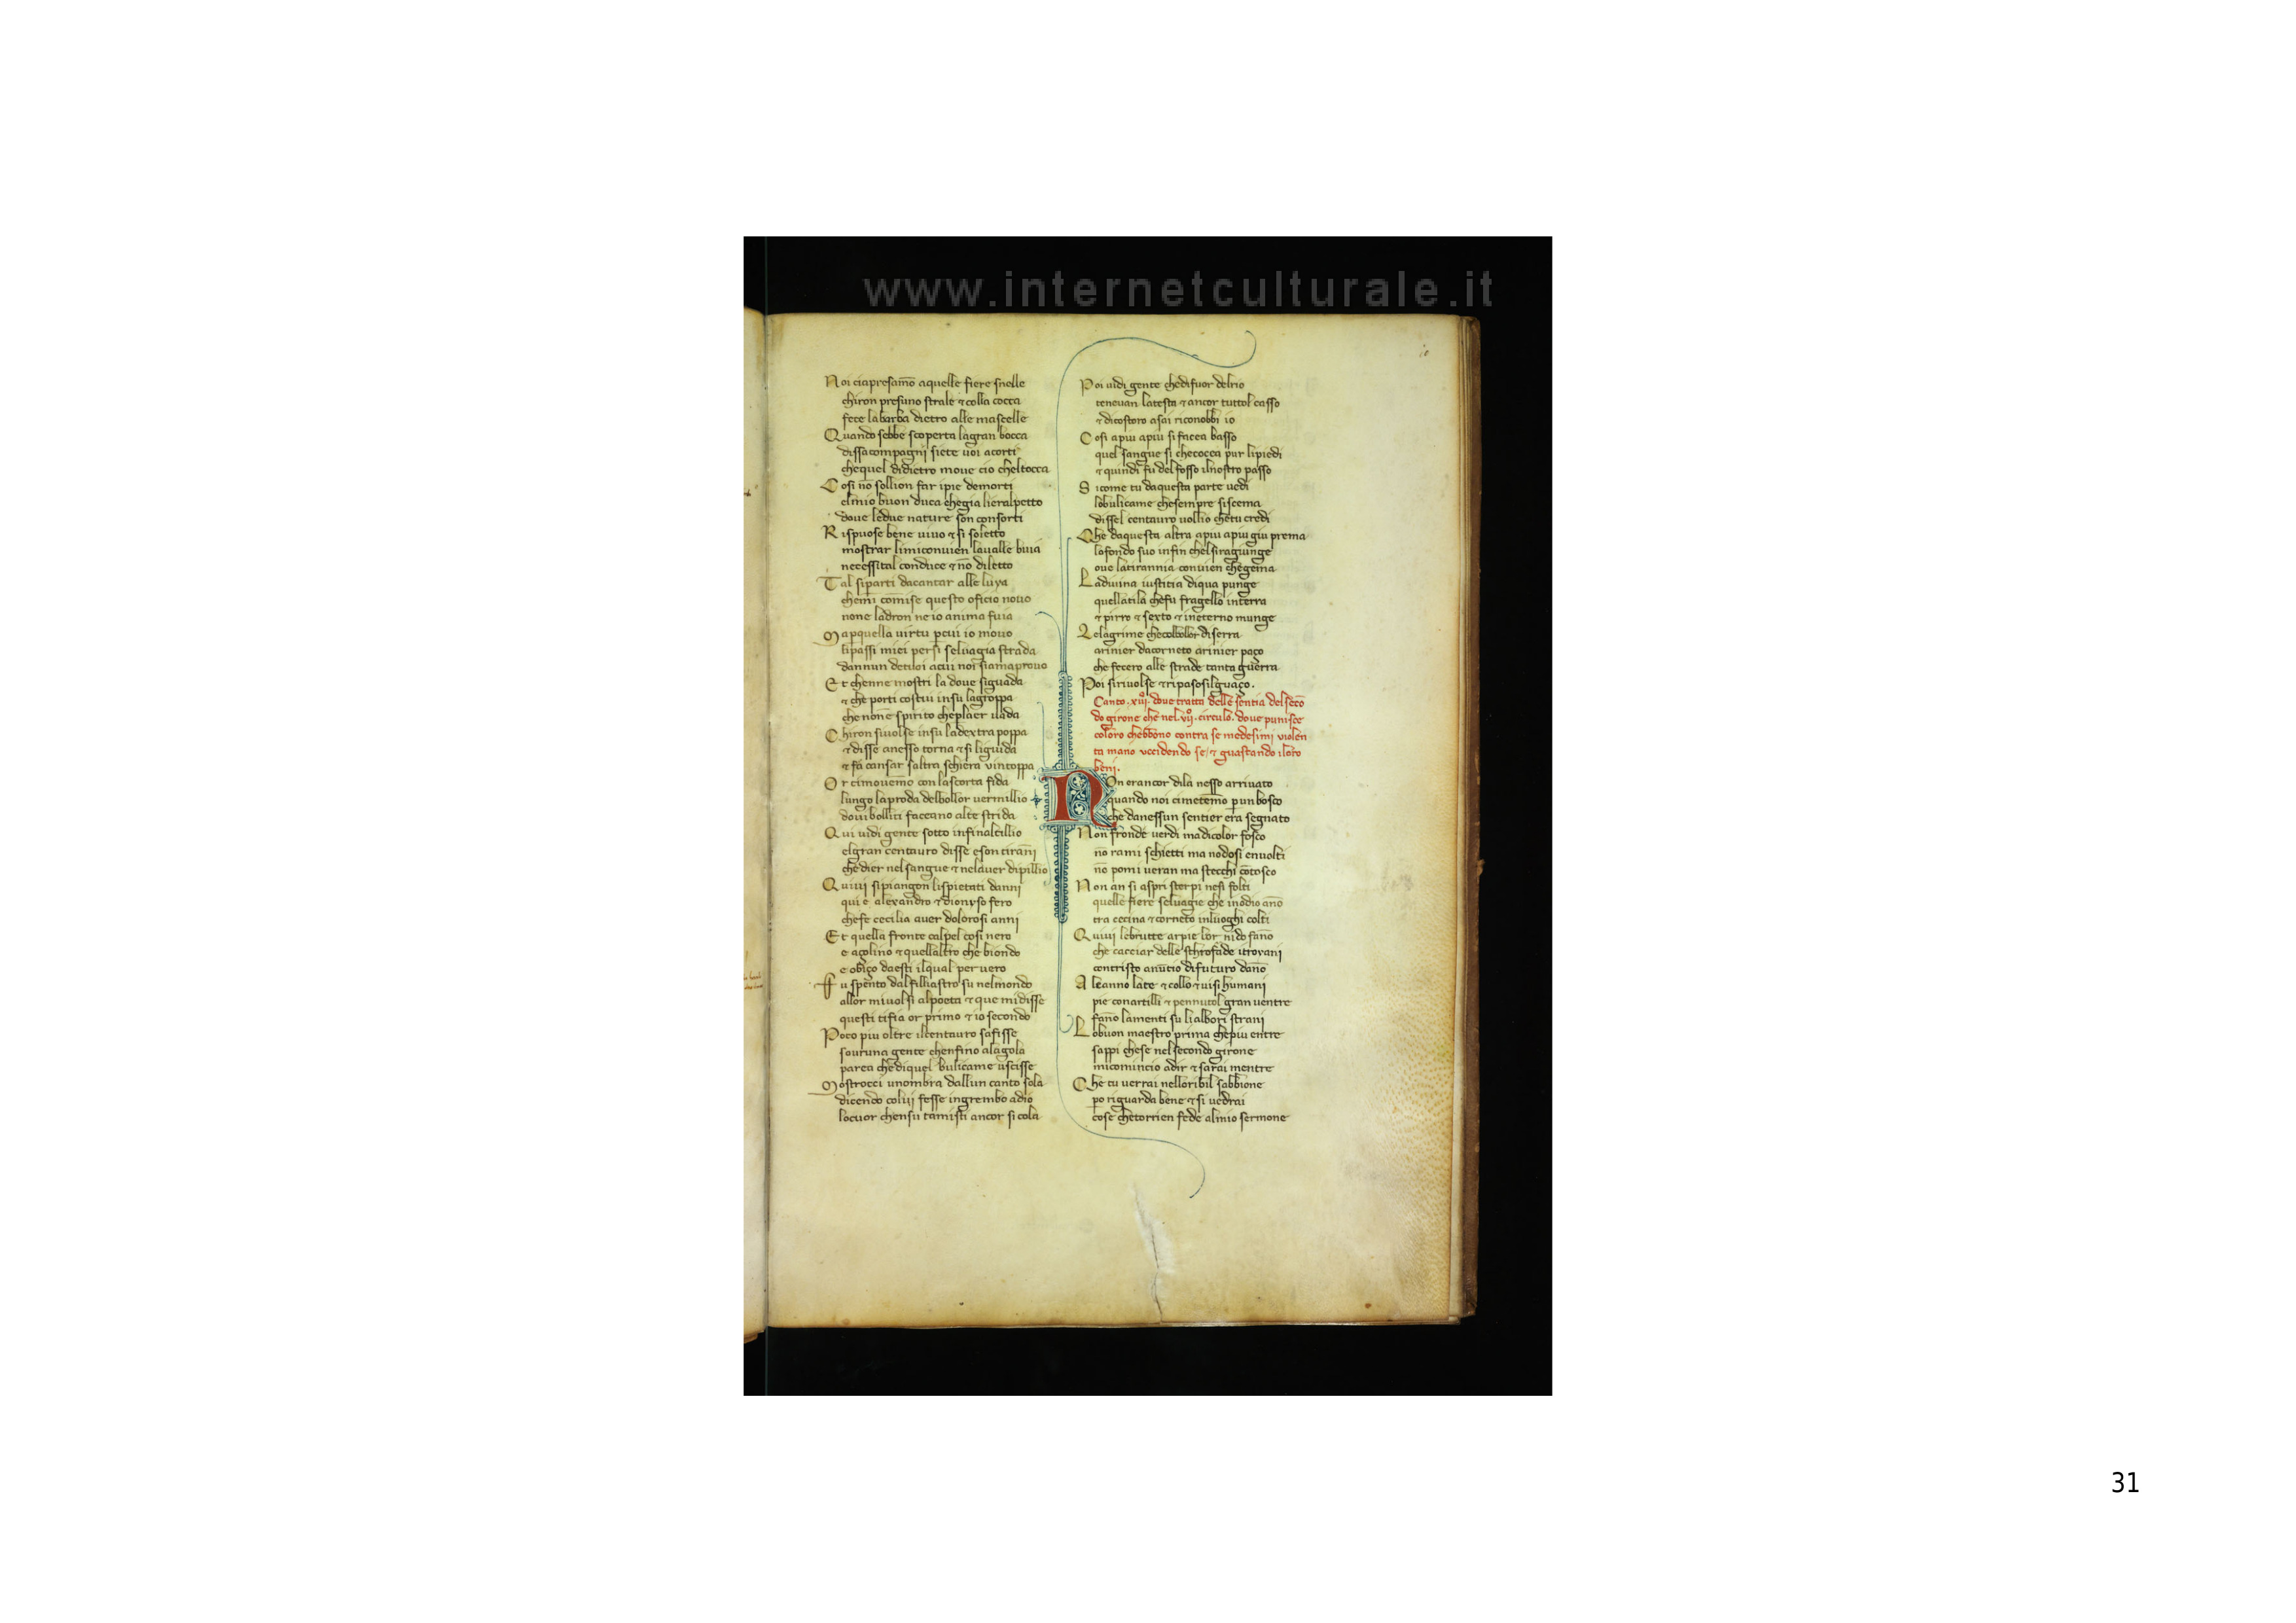 www.internetculturale.it
Noi ciapresamo aquelle fiere snelle
chiron presuno strale & colla cocca
fece labarba dietro alle mascelle
Quando sebbe scoperta lagran bocca
dissacompagni siete uoi acorti
chequel didietro moue cio cheltocca
Cosi no sollion far ipie demorti
elmio buon duca chegia lieralpetto
doue ledue nature son consorti
Rispuose bene uiuo & si soletto
mostrar limiconuien laualle buia
necessital conduce & no diletto
Tal siparti dacantar alle luya
chemi comise questo oficio nouo
none ladron ne io anima fuia
Ma pquella uirtu pcui io mouo
lipassi miei persi seluagia strada
dannun detuoi acui noi siamaprouo
Et chenne mostri la doue siguada
& che porti costui insu lagroppa
che none spirito cheplaer uada
Chiron siuolse insu ladextra poppa
& disse anesso torna & si liguida
& fa cansar saltra schiera uintoppa
Or cimouemo con lascorta fida
lungo laproda delbollor uermillio
doui bolliti faceano alte strida
Qui uidi gente sotto infinalcillio
elgran centauro disse eson tirani
che dier nelsangue & nelauer dipillio
Quiui sipiangon lispietati danni
qui e alexandro & dionyso fero
chefe cecilia auer dolorosi anni
Et quella fronte calpel cosi nero
e açolino & quellaltro che biondo
e obiço daesti ilqual per uero
Fu spento dalfilliastro su nelmondo
allor miuolsi alpoeta & que midisse
questi tifia or primo & io secondo
Poco piu oltre ilcentauro safisse
souruna gente chenfino alagola
parea chediquel bulicame uscisse
Mostrocci unombra dallun canto sola
dicendo colui fesse ingrembo adio
locuor chensu tamisi ancor si cola
io
Poi uidi gente chedifuor delrio
teneuan latesta & ancor tuttol casso
& dicostoro asai riconobbi io
Cosi apiu apiu si facea basso
quel sangue si chececea pur lipiedi
& quindi fu delfosso ilnostro passo
Sicome tu daquesta parte uedi
lobulicame chesempre siscema
dissel centauro uollio chetu credi
Che daquesta altra apiu apiu giu prema
lofondo suo infin chelsiragiunge
oue latirannia conuien chegema
Ladiuina iustitia diqua punge
quellatila chefu fragello interra
& pirro & sexto & ineterno munge
Lelagrime checolbollor diserra
arinier dacorneto arinier paço
che fecero alle strade tanta guerra
Poi siriuolse & ripasosilguaço.
Canto .xiij. doue tratta delle sentia delseco
do girone che nel .vij. circulo. doue punisce
coloro chebbono contra se medesimi uiolen
ta mano uccidendo se / & guastando iloro
beni.
Non erancor dila nesso arriuato
quando noi cimetemo p un bosco
che danessun sentier era segnato
Non fronde uerdi madicolor fosco
no rami schietti ma nodosi enuolti
no pomi ueran ma stecchi cotosco
Non an si aspri sterpi nesi folti
quelle fiere seluagie che inodio ano
tra cecina & corneto inluoghi colti
Quiui lebrutte arpie lor nido fano
che cacciar delle strofade itroyani
contristo anutio difuturo dano
Aleanno late & collo & uisi humani
pie conartilli & pennutol gran uentre
fano lamenti su lialbori strani
Lobuon maestro prima chepiu entre
sappi chese nelsecondo girone
micomincio adir & sarai mentre
Che tu uerrai nelloribil sabbione
po riguarda bene & si uedrai
cose chetorrien fede almio sermone
31